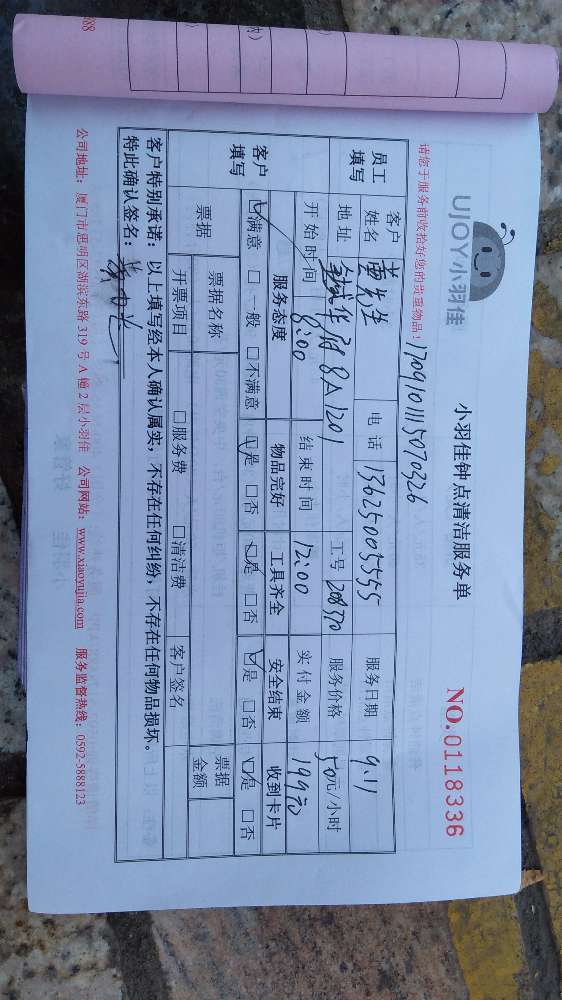 UJOY小羽佳
小羽佳钟点清洁服务单
NO.0118336
请您于服务前收拾好您的贵重物品！
员工填写
客户姓名 黄先生 电话 13625005555 服务日期 9.11
地址 华府8A1201 工号 208570 服务价格 50元/小时
开始时间 8:00 结束时间 12:00 实付金额 199元
客户填写
服务态度 物品完好 工具齐全 安全结束 收到卡片
☑满意 □一般 □不满意 ☑是 □否 ☑是 □否 ☑是 □否 ☑是 □否
票据 票据名称 票据金额
开票项目 □服务费 □清洁费 客户签名
客户特别承诺：以上填写经本人确认属实，不存在任何纠纷，不存在任何物品损坏。
特此确认签名：
公司地址：厦门市思明区湖滨东路319号A幢2层小羽佳 公司网站：www.xiaoyujia.com 服务监督热线：0592-5888123